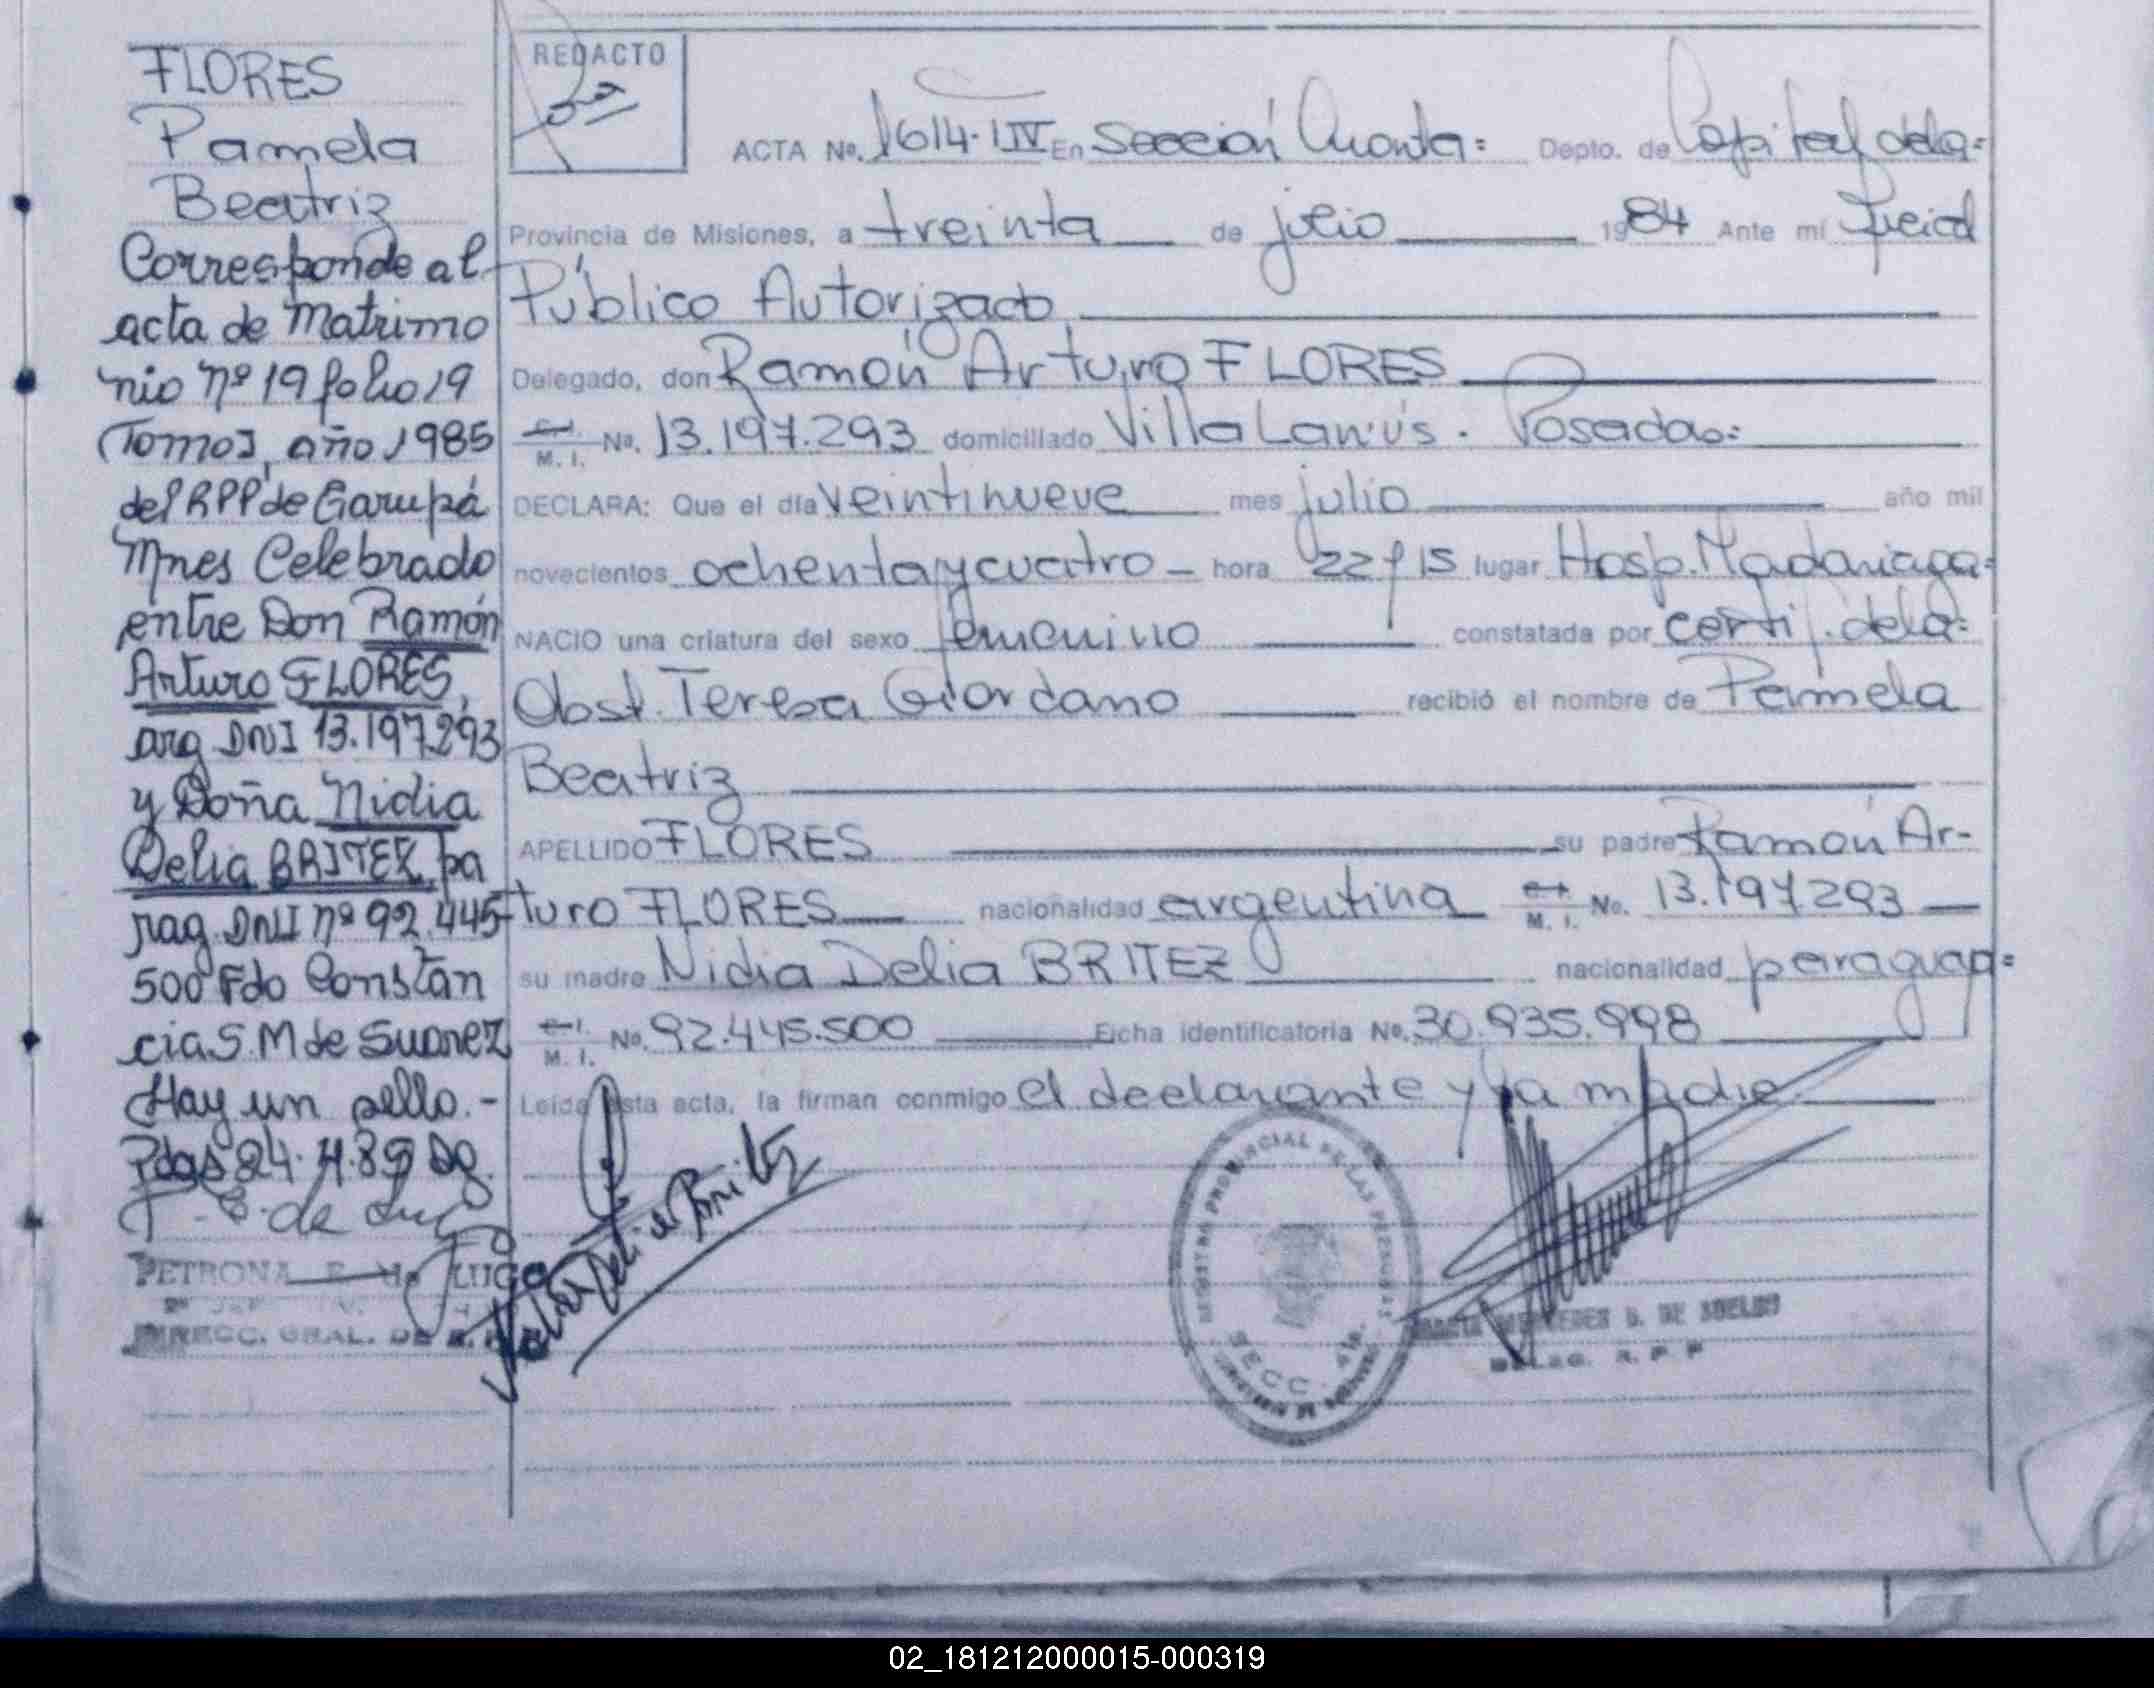 FLORES
Pamela
Beatriz
Corresponde al
acta de Matrimo
nio nº 19 folio 19
Tomo I, año 1985
del RPP de Garupá
Mnes Celebrado
entre Don Ramón
Arturo FLORES,
arg. DNI 13.197.293
y Doña Nidia
Delia BRITEZ, pa
rag. DNI nº 92.445
500 Fdo Constan
cia S. M de Suarez
Hay un sello.-
Pdas 24.4.89 Dg.
PETRONA E. LUGO
DIRECC. GRAL. DE
REDACTO
ACTA No. 1614-T IV En Sección Cuarta= Depto. de Capital de la=
Provincia de Misiones, a treinta de julio 1984 Ante mí Oficial
Público Autorizado
Delegado, don Ramón Arturo FLORES
C.I. M. I. No. 13.197.293 domiciliado Villa Lanús. Posadas=
DECLARA: Que el día veintinueve mes julio año mil
novecientos ochenta y cuatro - hora 22 y 15 lugar Hosp. Madariaga=
NACIO una criatura del sexo femenino constatada por certif. de la=
Obst. Teresa Giordano recibió el nombre de Pamela
Beatriz
APELLIDO FLORES su padre Ramón Ar-
turo FLORES nacionalidad argentina C.I. M. I. No. 13.197.293
su madre Nidia Delia BRITEZ nacionalidad paraguay=
C.I. M. I. No. 92.445.500 Ficha identificatoria No. 30.935.998
Leída esta acta, la firman conmigo el declarante y la madre
Nidia Delia Britez
REGISTRO PROVINCIAL DE LAS PERSONAS
SECC. 4ta.
DE SUELDO
DELEG. R. P. P
02_181212000015-000319